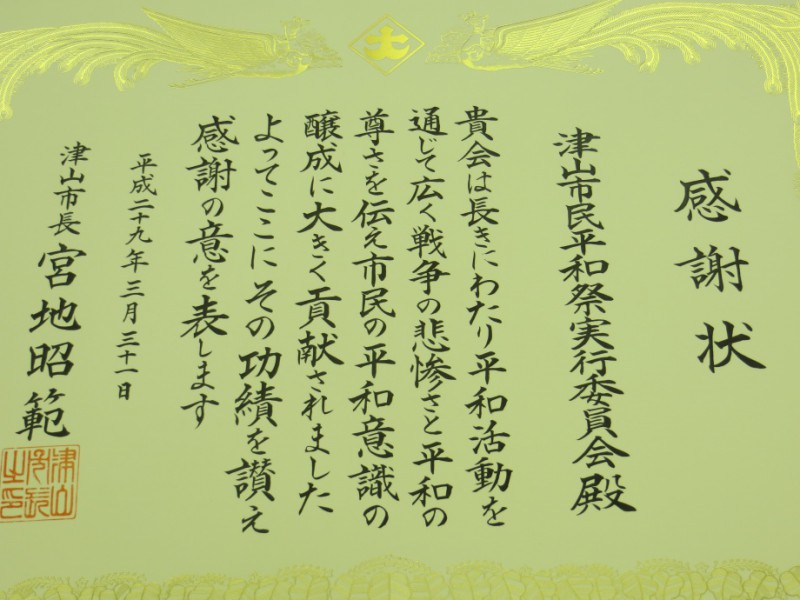 感謝状
津山市民平和祭実行委員会殿
貴会は長きにわたり平和活動を
通じて広く戦争の悲惨さと平和の
尊さを伝え市民の平和意識の
醸成に大きく貢献されました
よってここにその功績を讃え
感謝の意を表します
平成二十九年三月三十一日
津山市長 宮地昭範
津山市長之印